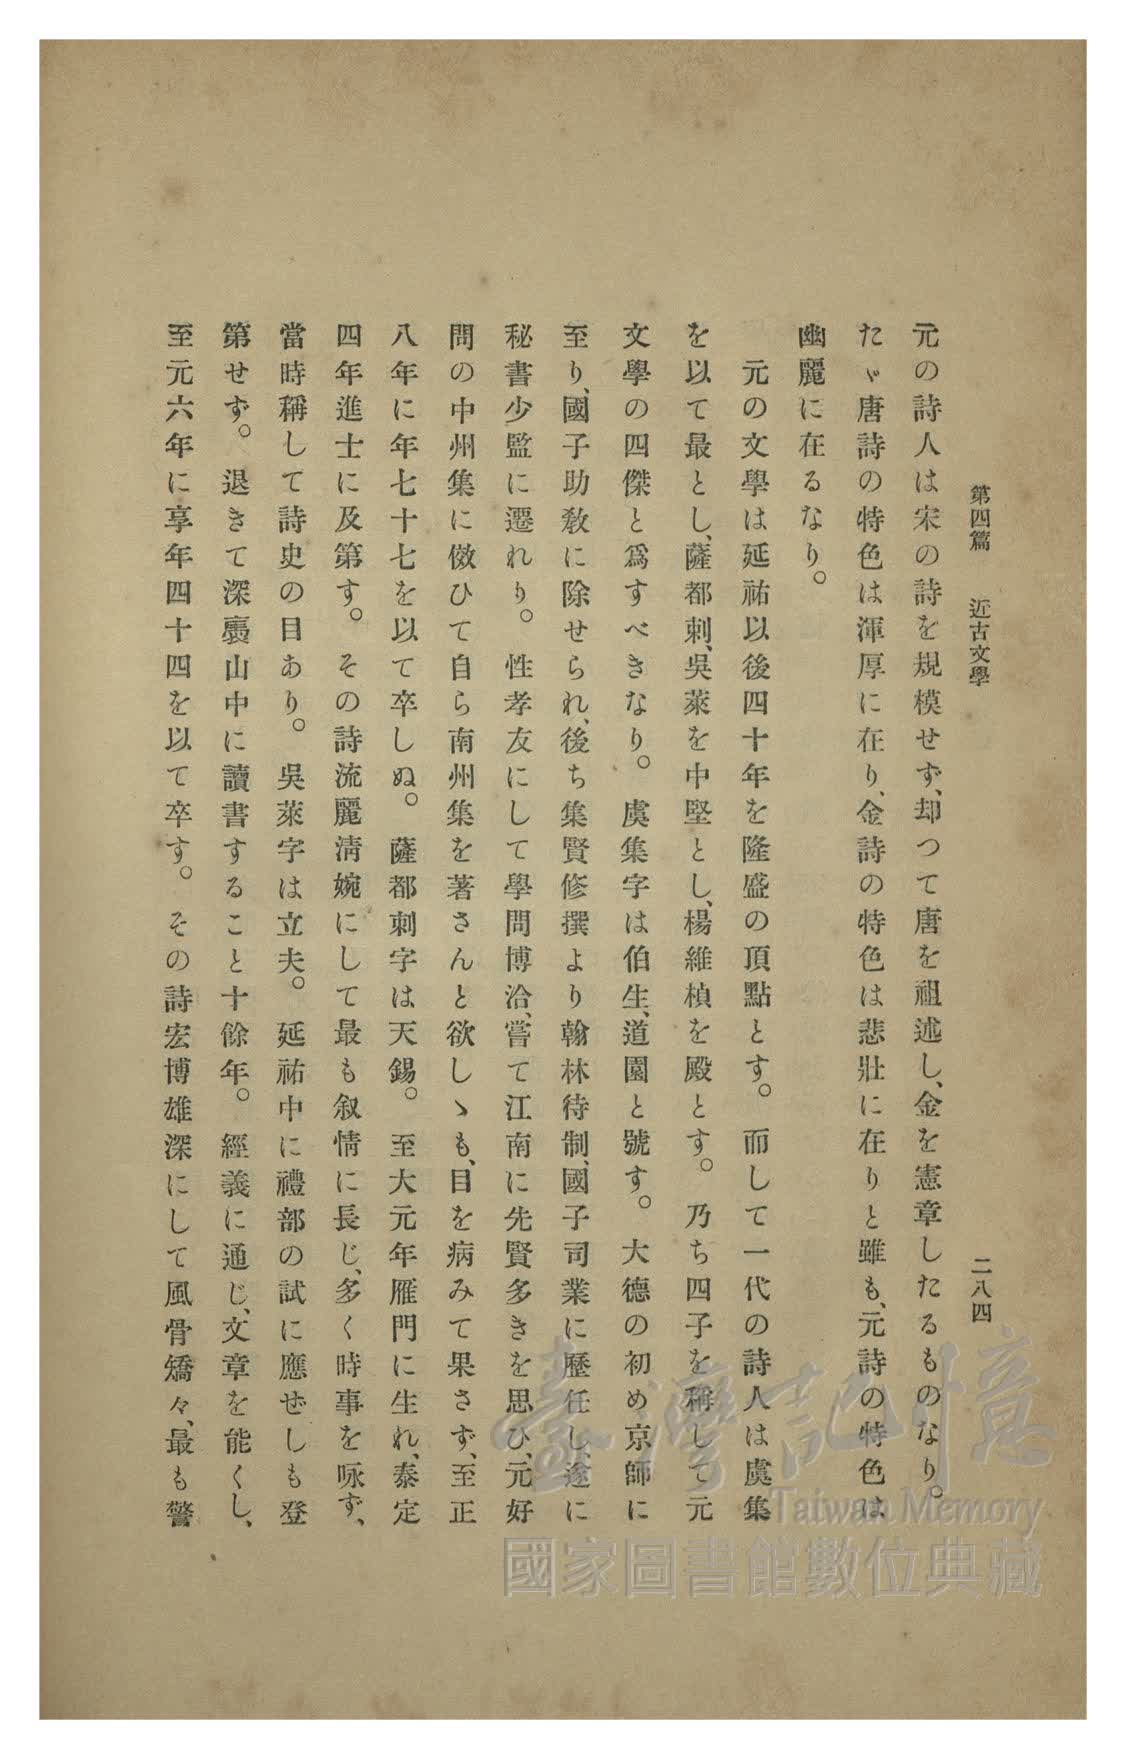 第四篇　近古文學　二八四
元の詩人は宋の詩を規模せず、却つて唐を祖述し、金を憲章したるものなり。
たゞ唐詩の特色は渾厚に在り、金詩の特色は悲壯に在りと雖も、元詩の特色は
幽麗に在るなり。
　元の文學は延祐以後四十年を隆盛の頂點とす。而して一代の詩人は虞集
を以て最とし、薩都刺、吳萊を中堅とし、楊維楨を殿とす。乃ち四子を稱して元
文學の四傑と爲すべきなり。虞集字は伯生、道園と號す。大德の初め京師に
至り、國子助敎に除せられ、後ち集賢修撰より翰林待制、國子司業に歷任し、遂に
秘書少監に遷れり。性孝友にして學問博洽、嘗て江南に先賢多きを思ひ、元好
問の中州集に傚ひて自ら南州集を著さんと欲しゝも、目を病みて果さず、至正
八年に年七十七を以て卒しぬ。薩都刺字は天錫。至大元年雁門に生れ、泰定
四年進士に及第す。その詩流麗淸婉にして最も叙情に長じ、多く時事を咏ず、
當時稱して詩史の目あり。吳萊字は立夫。延祐中に禮部の試に應ぜしも登
第せず。退きて深裹山中に讀書すること十餘年。經義に通じ、文章を能くし、
至元六年に享年四十四を以て卒す。その詩宏博雄深にして風骨矯々、最も警
臺灣記憶
Taiwan Memory
國家圖書館數位典藏